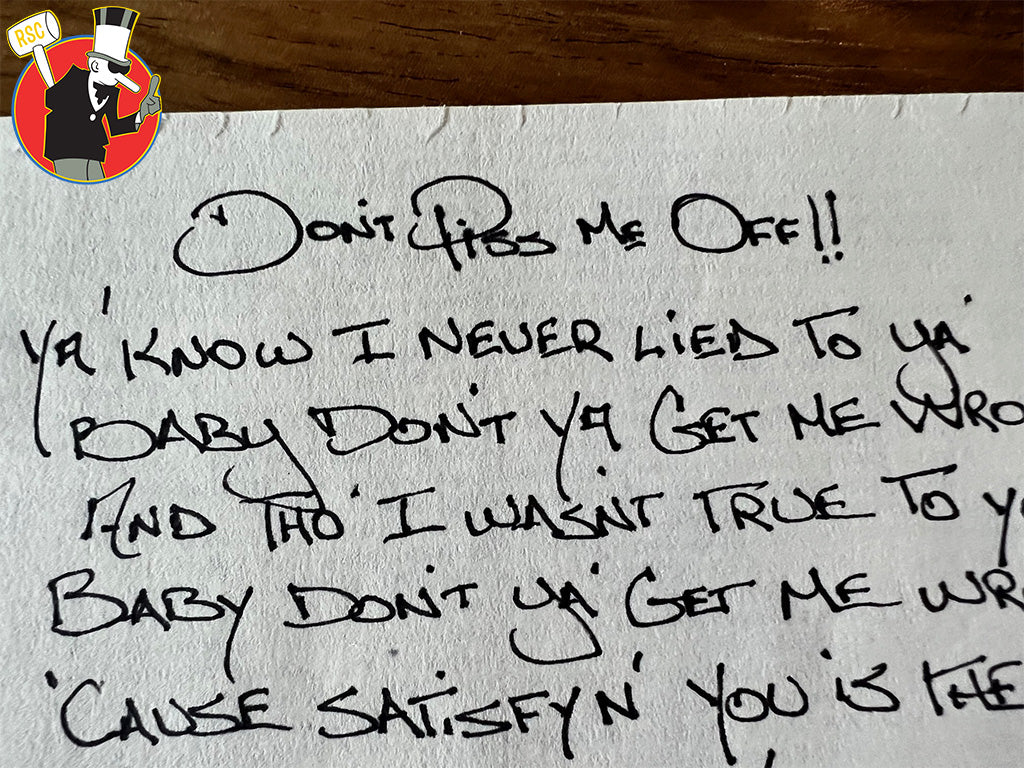 RSC
Don't Piss Me Off!!
Ya' Know I Never Lied To Ya'
Baby Don't Ya Get Me Wro
And Tho' I Wasn't True To Y
Baby Don't Ya' Get Me Wr
'Cause Satisfyn' You is the